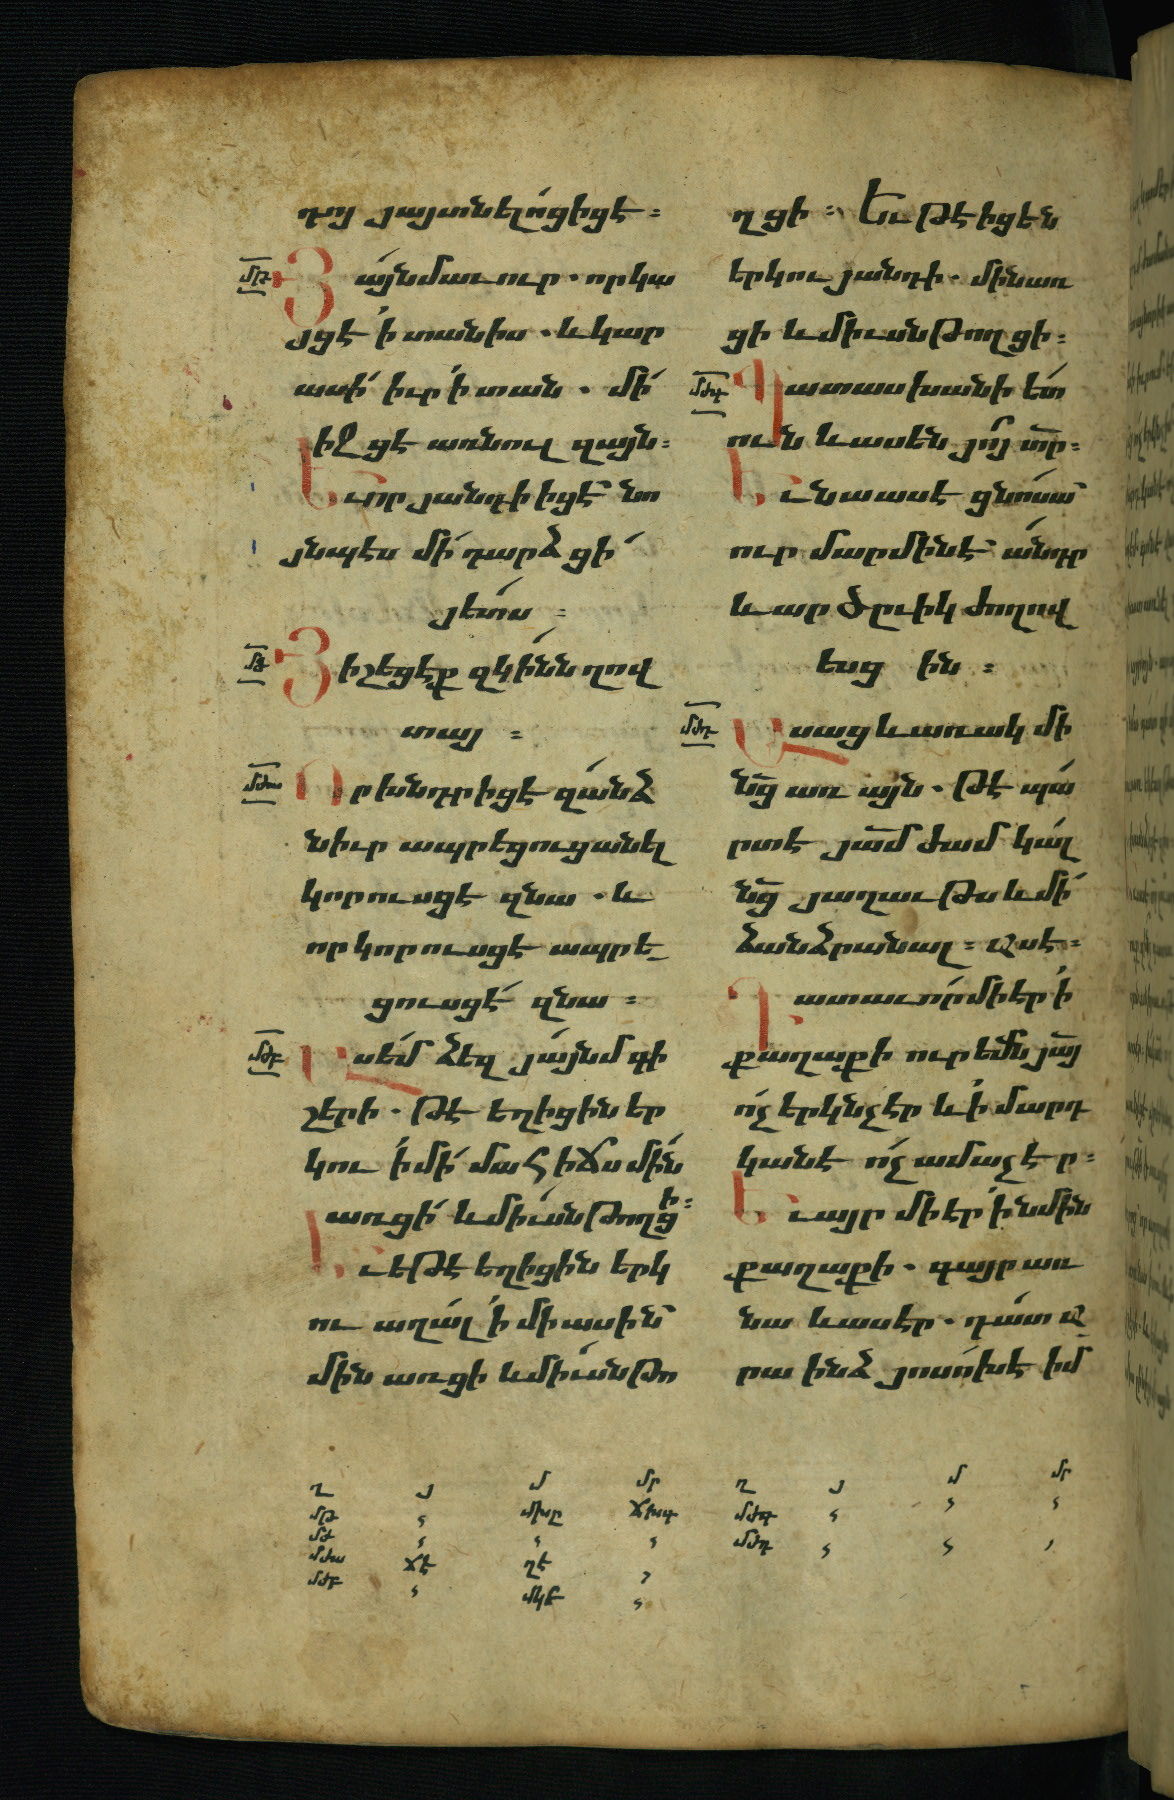 դոյ յայտնելոցիցէ ։
մթ
Յ այնմաւուր · որկա
յցէ ի տանիս · և կար
ասի իւր ի տան · մի
իջցէ առնուլ զայն ։
Եւ որ յանդի իցէ նո
յնպէս մի դարձցի
յետս ։
մժ
Յիշեցէք զկինն ղով
տայ ։
մժա
Որ խնդրիցէ զանձ
նիւր ապրեցուցանել
կորուսցէ զնա · և
որ կորուսցէ ապրե
ցուսցէ զնա ։
մժբ
Ասեմ ձեզ յայնմ գի
շերի · Թէ եղիցին եր
կու ի մի մահիճս մին
առցի և միւսն Թողցի ։
Եւ եԹէ եղիցին երկ
ու աղալ ի միասին
մին առցի և միւսն Թո
ղցի ։ Եւ Թէ իցեն
երկու յանդի · մինառ
ցի և միւսն Թողցի ։
մժգ
Պատասխանի ետ
ուն և ասեն ցնա տր ։
Եւ նա ասէ ցնոսա
ուր մարմինէ անդր
և արծըւիկ ժողով
եսց ին ։
մժդ
Ասաց և առակ մի
նց առ այն · Թէ պա
րտէ յամ ժամ կալ
նց յաղաւԹս և մի
ձանձրանալ ։ Ωսէ ։
Դատաւոր մի էր ի
քաղաքի ուրեմն յայ
ոչ երկնչէր և ի մարդ
կանէ ոչ ամաչէր ։
Եւ այր մի էր ի նմին
քաղաքի · գայր առ
նա և ասէր · դատ ա
րա ինձ յոսոխէ իմ
ղ յ մ մր
մթ մխը ճխգ
մժ
մժա ճէ ղէ
մժբ մկե
ղ յ մ մր
մժգ
մժդ